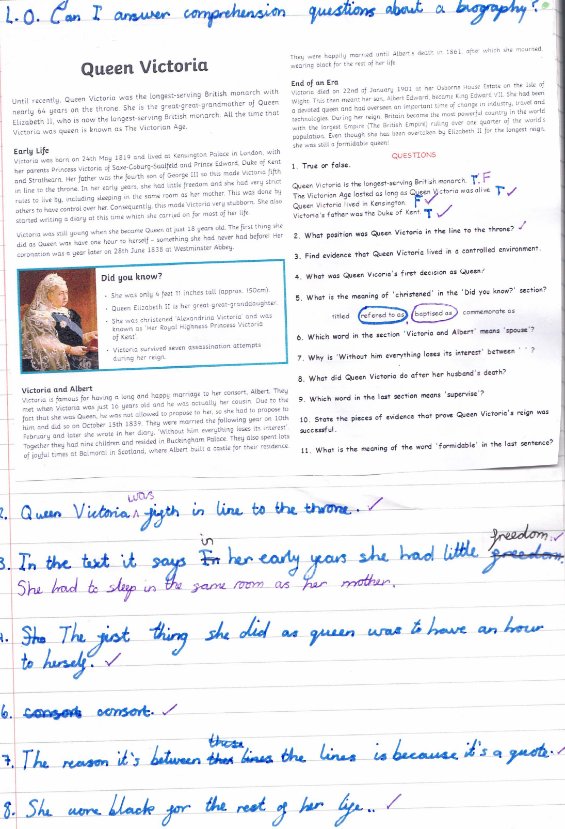 L.O. Can I answer comprehension questions about a biography?
Queen Victoria
Until recently, Queen Victoria was the longest-serving British monarch with
nearly 64 years on the throne. She is the great-great-grandmother of Queen
Elizabeth II, who is now the longest-serving British monarch. All the time that
Victoria was queen is known as The Victorian Age.
Early Life
Victoria was born on 24th May 1819 and lived at Kensington Palace in London, with
her parents Princess Victoria of Saxe-Coburg-Saalfeld and Prince Edward, Duke of Kent
and Strathearn. Her father was the fourth son of George III so this made Victoria fifth
in line to the throne. In her early years, she had little freedom and she had very strict
rules to live by, including sleeping in the same room as her mother. This was done by
others to have control over her. Consequently, this made Victoria very stubborn. She also
started writing a diary at this time which she carried on for most of her life.
Victoria was still young when she became Queen at just 18 years old. The first thing she
did as Queen was have one hour to herself – something she had never had before! Her
coronation was a year later on 28th June 1838 at Westminster Abbey.
Did you know?
• She was only 4 feet 11 inches tall (approx. 150cm).
• Queen Elizabeth II is her great-great-granddaughter.
• She was christened 'Alexandrina Victoria' and was
known as 'Her Royal Highness Princess Victoria
of Kent'.
• Victoria survived seven assassination attempts
during her reign.
Victoria and Albert
Victoria is famous for having a long and happy marriage to her consort, Albert. They
met when Victoria was just 16 years old and he was actually her cousin. Due to the
fact that she was Queen, he was not allowed to propose to her, so she had to propose to
him and did so on October 15th 1839. They were married the following year on 10th
February and later she wrote in her diary, 'Without him everything loses its interest'.
Together they had nine children and resided in Buckingham Palace. They also spent lots
of joyful times at Balmoral in Scotland, where Albert built a castle for their residence.
They were happily married until Albert's death in 1861 after which she mourned,
wearing black for the rest of her life.
End of an Era
Victoria died on 22nd of January 1901 at her Osborne House Estate on the Isle of
Wight. This then meant her son, Albert Edward, became King Edward VII. She had been
a devoted queen and had overseen an important time of change in industry, travel and
technologies. During her reign, Britain became the most powerful country in the world
with the largest Empire (The British Empire) ruling over one quarter of the world's
population. Even though she has been overtaken by Elizabeth II for the longest reign,
she was still a formidable queen!
QUESTIONS
1. True or false.
Queen Victoria is the longest-serving British monarch. T F
The Victorian Age lasted as long as Queen Victoria was alive. T
Queen Victoria lived in Kensington. F
Victoria's father was the Duke of Kent. T
2. What position was Queen Victoria in the line to the throne?
3. Find evidence that Queen Victoria lived in a controlled environment.
4. What was Queen Vicoria's first decision as Queen?
5. What is the meaning of 'christened' in the 'Did you know?' section?
titled referred to as baptised as commemorate as
6. Which word in the section 'Victoria and Albert' means 'spouse'?
7. Why is 'Without him everything loses its interest' between ' '?
8. What did Queen Victoria do after her husband's death?
9. Which word in the last section means 'supervise'?
10. State the pieces of evidence that prove Queen Victoria's reign was
successful.
11. What is the meaning of the word 'formidable' in the last sentence?
2. Queen Victoria was fifth in line to the throne.
3. In the text it says in her early years she had little freedom.
She had to sleep in the same room as her mother.
4. The first thing she did as queen was to have an hour
to herself.
6. consort.
7. The reason it's between these lines the lines is because it's a quote.
8. She wore black for the rest of her life..